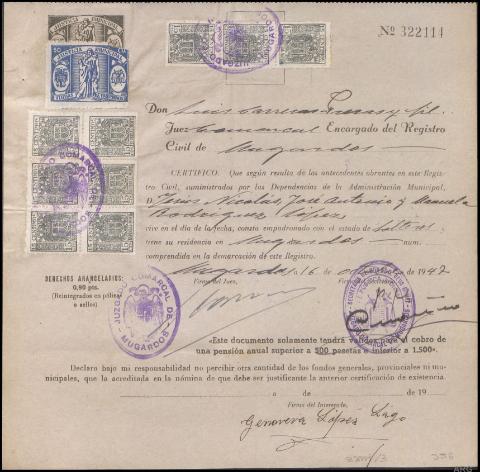 Nº 322114
JUSTICIA MUNICIPAL
JUSTICIA MUNICIPAL
Don Luis
Juez Comarcal Encargado del Registro
Civil de Mugardos
CERTIFICO: Que según resulta de los antecedentes obrantes en este Registro
Civil, suministrados por las Dependencias de la Administración Municipal,
D. Jesús Nicolás, José Antonio y Manuela
Rodríguez López
vive en el día de la fecha; consta empadronado con el estado de Solteros
y tiene su residencia en Mugardos núm.
comprendida en la demarcación de este Registro.
Mugardos 16 de de 1947
DERECHOS ARANCELARIOS:
0,90 ptas.
(Reintegrados en póliza
o sellos)
Firma del Juez,
JUZGADO COMARCAL DE
MUGARDOS
«Este documento solamente tendrá validez para el cobro de
una pensión anual superior a 500 pesetas e inferior a 1.500».
Declaro bajo mi responsabilidad no percibir otra cantidad de los fondos generales, provinciales ni mu-
nicipales, que la acreditada en la nómina de que debe ser justificante la anterior certificación de existencia.
a de de 19
Firma del Interesado,
Genoveva López Lago